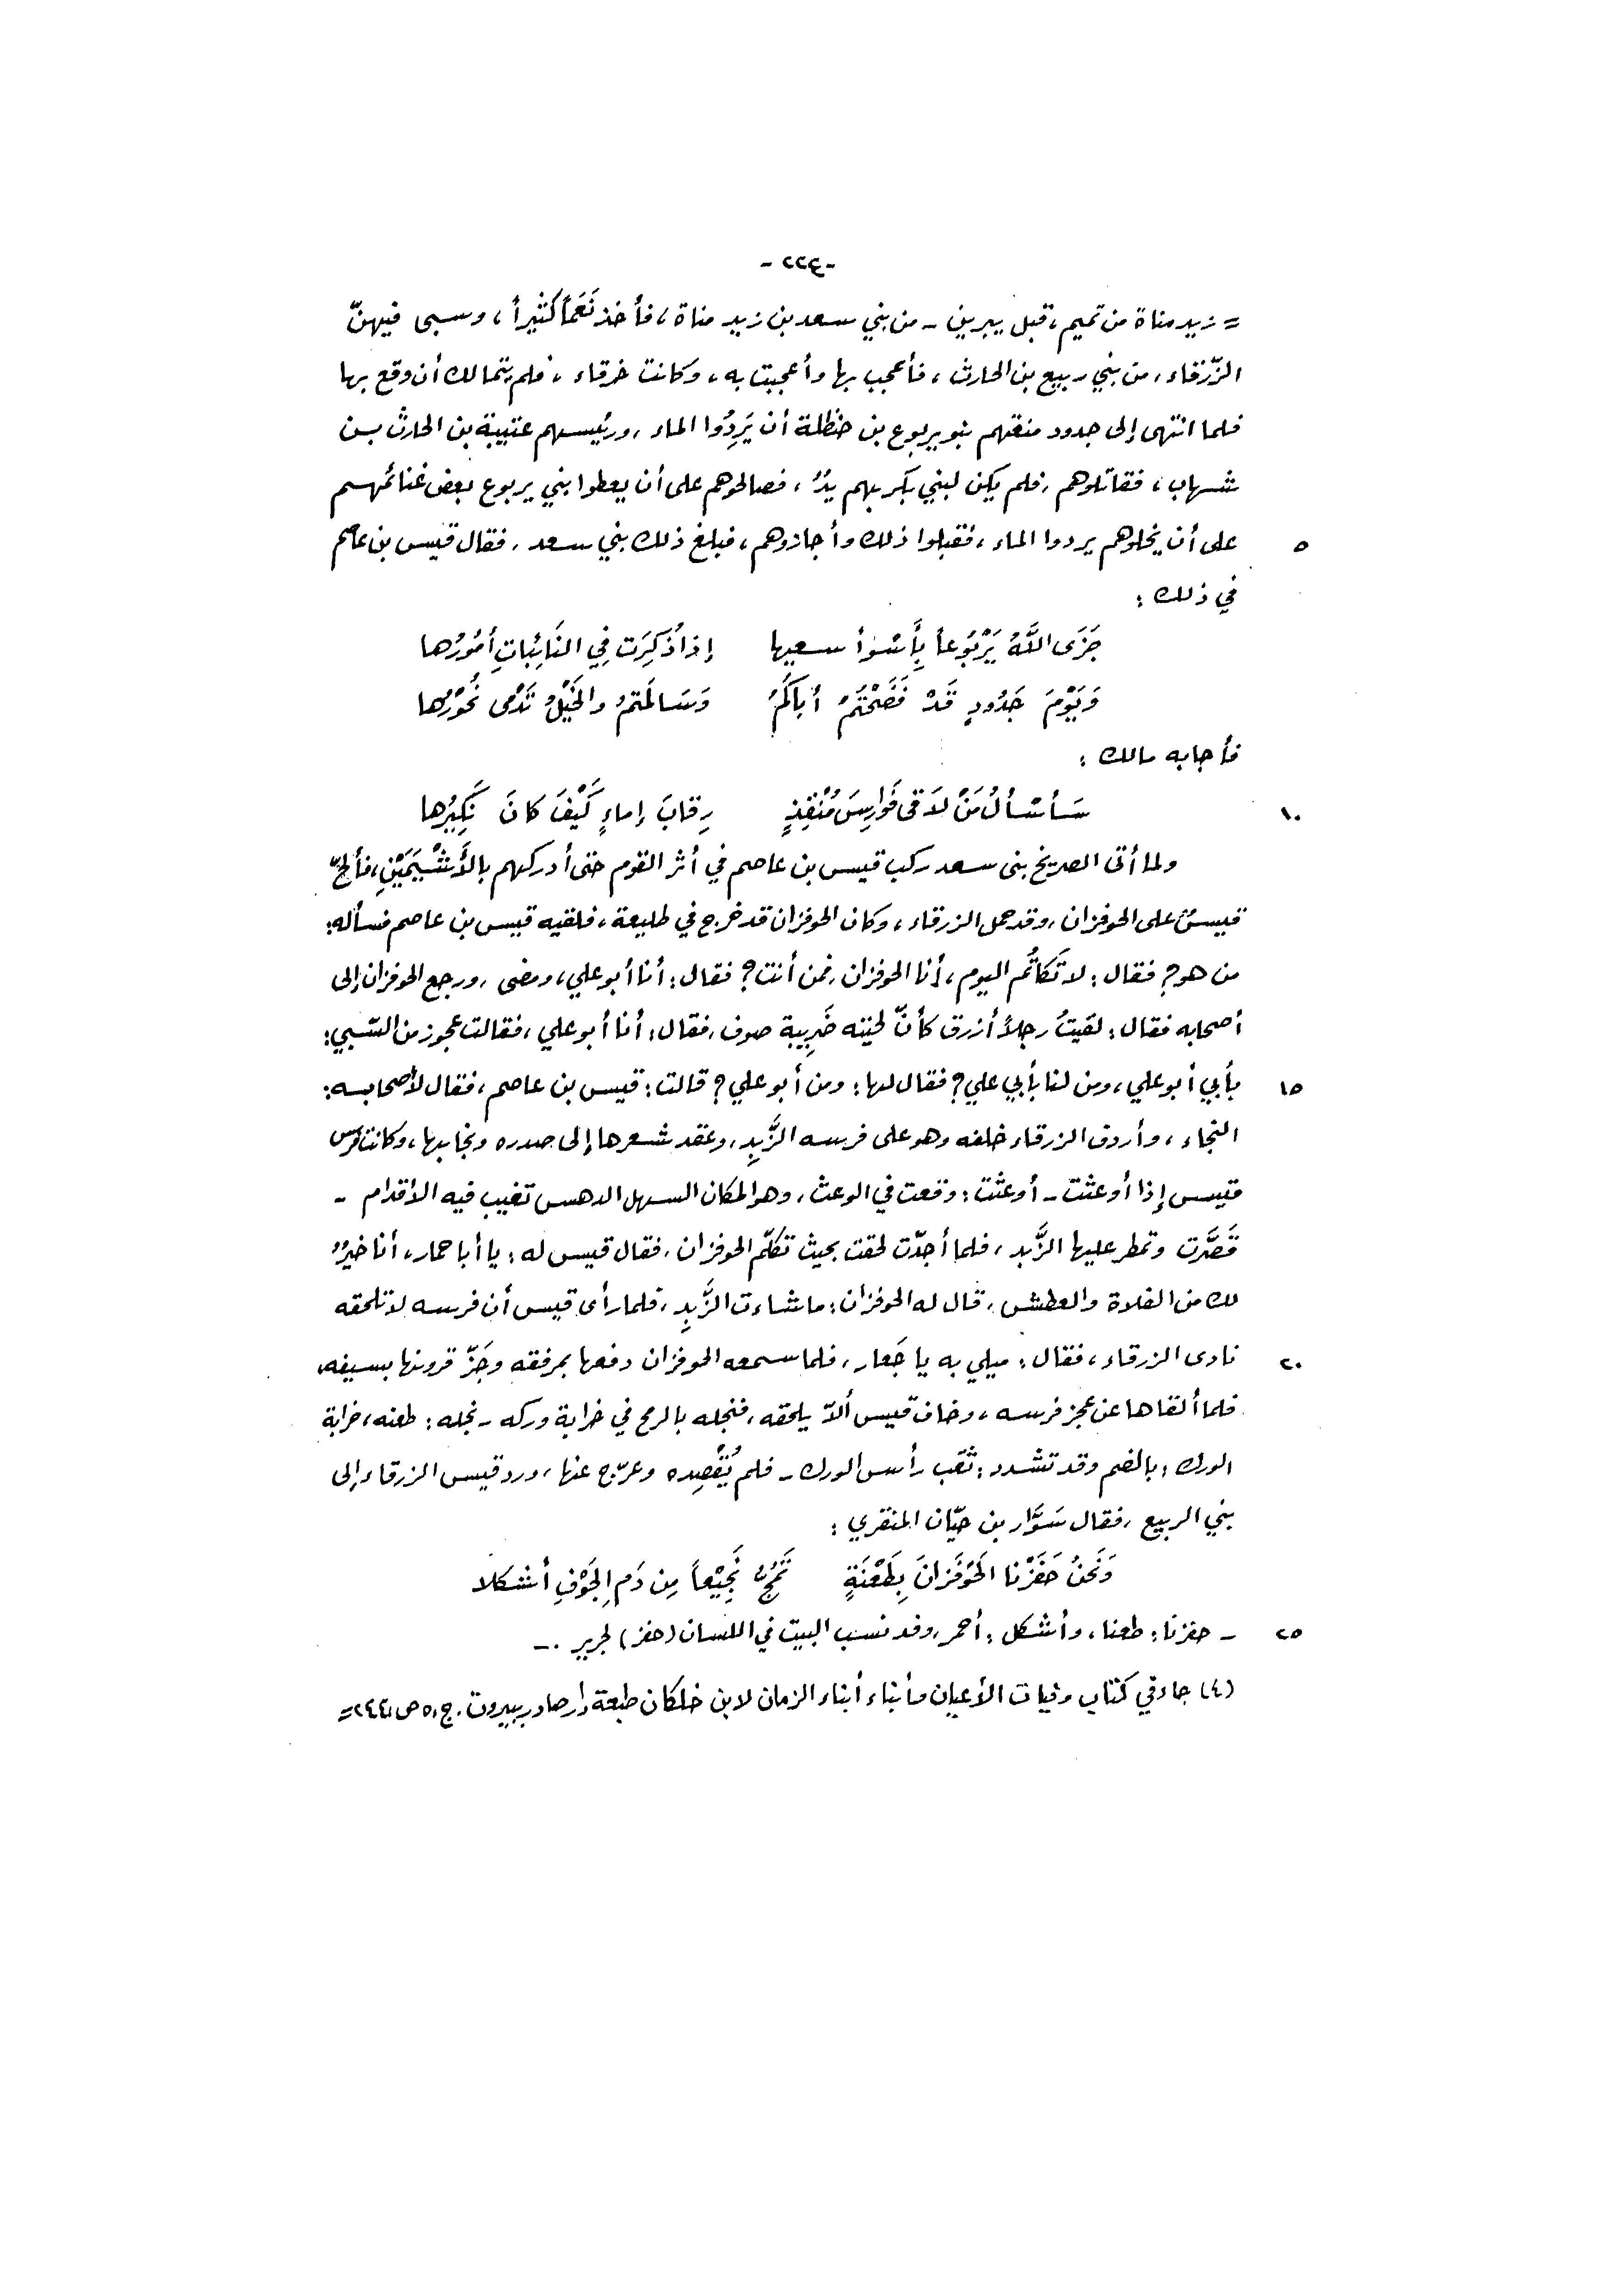 -٢٢٤-
= زيد مناة من تميم، قبل يبرين - من بني سعد بن زيد مناة، فأخذ نَعَماً كثيراً، وسبى فيهنّ
الزّرقاء، من بني ربيع بن الحارث، فأعجب بها وأعجبت به، وكانت خرقاء، فلم يتمالك أن وقع بها
فلما انتهى إلى جدود منعتهم بنو يربوع بن حنظلة أن يَرِدُوا الماء، ورئيسهم عتيبة بن الحارث بن
شهاب، فقاتلوهم، فلم يكن لبني بكر بهم يدٌ، فصالحوهم على أن يعطوا بني يربوع بعض غنائمهم
٥ على أن يخلوهم يردوا الماء، فقبلوا ذلك وأجازوهم، فبلغ ذلك بني سعد، فقال قيس بن عاصم
في ذلك :
جَزَى اللَّهُ يَرْبُوعاً بِأَسْوأ سعيها إذا ذُكِرَت فِي النَائِباتِ أُمُورُها
وَيَوْمَ جَدُودٍ قَدْ فَضَحْتُمُ أباكُمُ وَسَالَمْتمُ والخَيْلُ تَدْمَى نُحُوْرُها
فأجابه مالك :
١٠ سَأسْألُ مَنْ لاَقى فَوارِسَ مُنْقِذٍ رِقابَ إماءٍ كَيْفَ كانَ نَكِيْرُها
ولما أتى الصريخ بنى سعد ركب قيس بن عاصم في أثر القوم حتى أدركهم بالأَشْيَمَيْنِ، فألحّ
قيسٌ على الحوفزان، وقد حمل الزرقاء، وكان الحوفزان قد خرج في طليعة، فلقيه قيس بن عاصم فسأله:
من هو؟ فقال: لا تَكَاتُم اليوم، أنا الحوفزان، فمن أنت؟ فقال: أنا أبو علي، ومضى، ورجع الحوفزان إلى
أصحابه فقال: لقيتُ رجلاً أزرق كأنّ لحيته ضَرِيبة صوف، فقال: أنا أبو علي، فقالت عجوز من السّبي:
١٥ بأبي أبو علي، ومن لنا بأبي علي؟ فقال لها: ومن أبو علي؟ قالت: قيس بن عاصم، فقال لأصحابه:
النجاء، وأردف الزرقاء خلفه وهو على فرسه الزَّبِدِ، وعقد شعرها إلى صدره ونجا بها، وكانت فرس
قيس إذا أوعثت - أوعثت: وقعت في الوعث، وهو المكان السهل الدهس تغيب فيه الأقدام -
قَصَّرَت وتمطر عليها الزَّبد، فلما أجدّت لحقت بحيث تكلّم الحوفزان، فقال قيس له: يا أبا حمار، أنا خيرٌ
لك من الفلاة والعطش، قال له الحوفزان: ما شاءت الزَّبِدِ، فلما رأى قيس أن فرسه لا تلحقه
٢٠ نادى الزرقاء، فقال: ميلي به يا جَعار، فلما سمعه الحوفزان دفعها بمرفقه وجَزّ قرونها بسيفه،
فلما ألقاها عن عجز فرسه، وخاف قيس ألاّ يلحقه، فنجله بالرمح في خرابة وركه - نجله: طعنه، خرابة
الورك، بالضم وقد تشدد: ثقب رأس الورك - فلم يُقْصِده وعرّج عنها، ورد قيس الزرقاء إلى
بني الربيع، فقال سَوَّار بن حيّان المنقري :
وَنَحنُ حَفَزْنا الحَوْفَزانَ بِطَعْنَةٍ تَمُجُّ نَجِيْعاً مِن دَمِ الجَوْفِ أشكلا
٢٥ - حفزنا: طعنا، وأشكل: أحمر، وقد نسب البيت في اللسان (حفز) لجرير . -
(٤) جاء في كتاب وفيات الأعيان وأنباء أبناء الزمان لابن خلكان طبعة دار صادر ببيروت. ج:٥ ص:٢٤٤ =